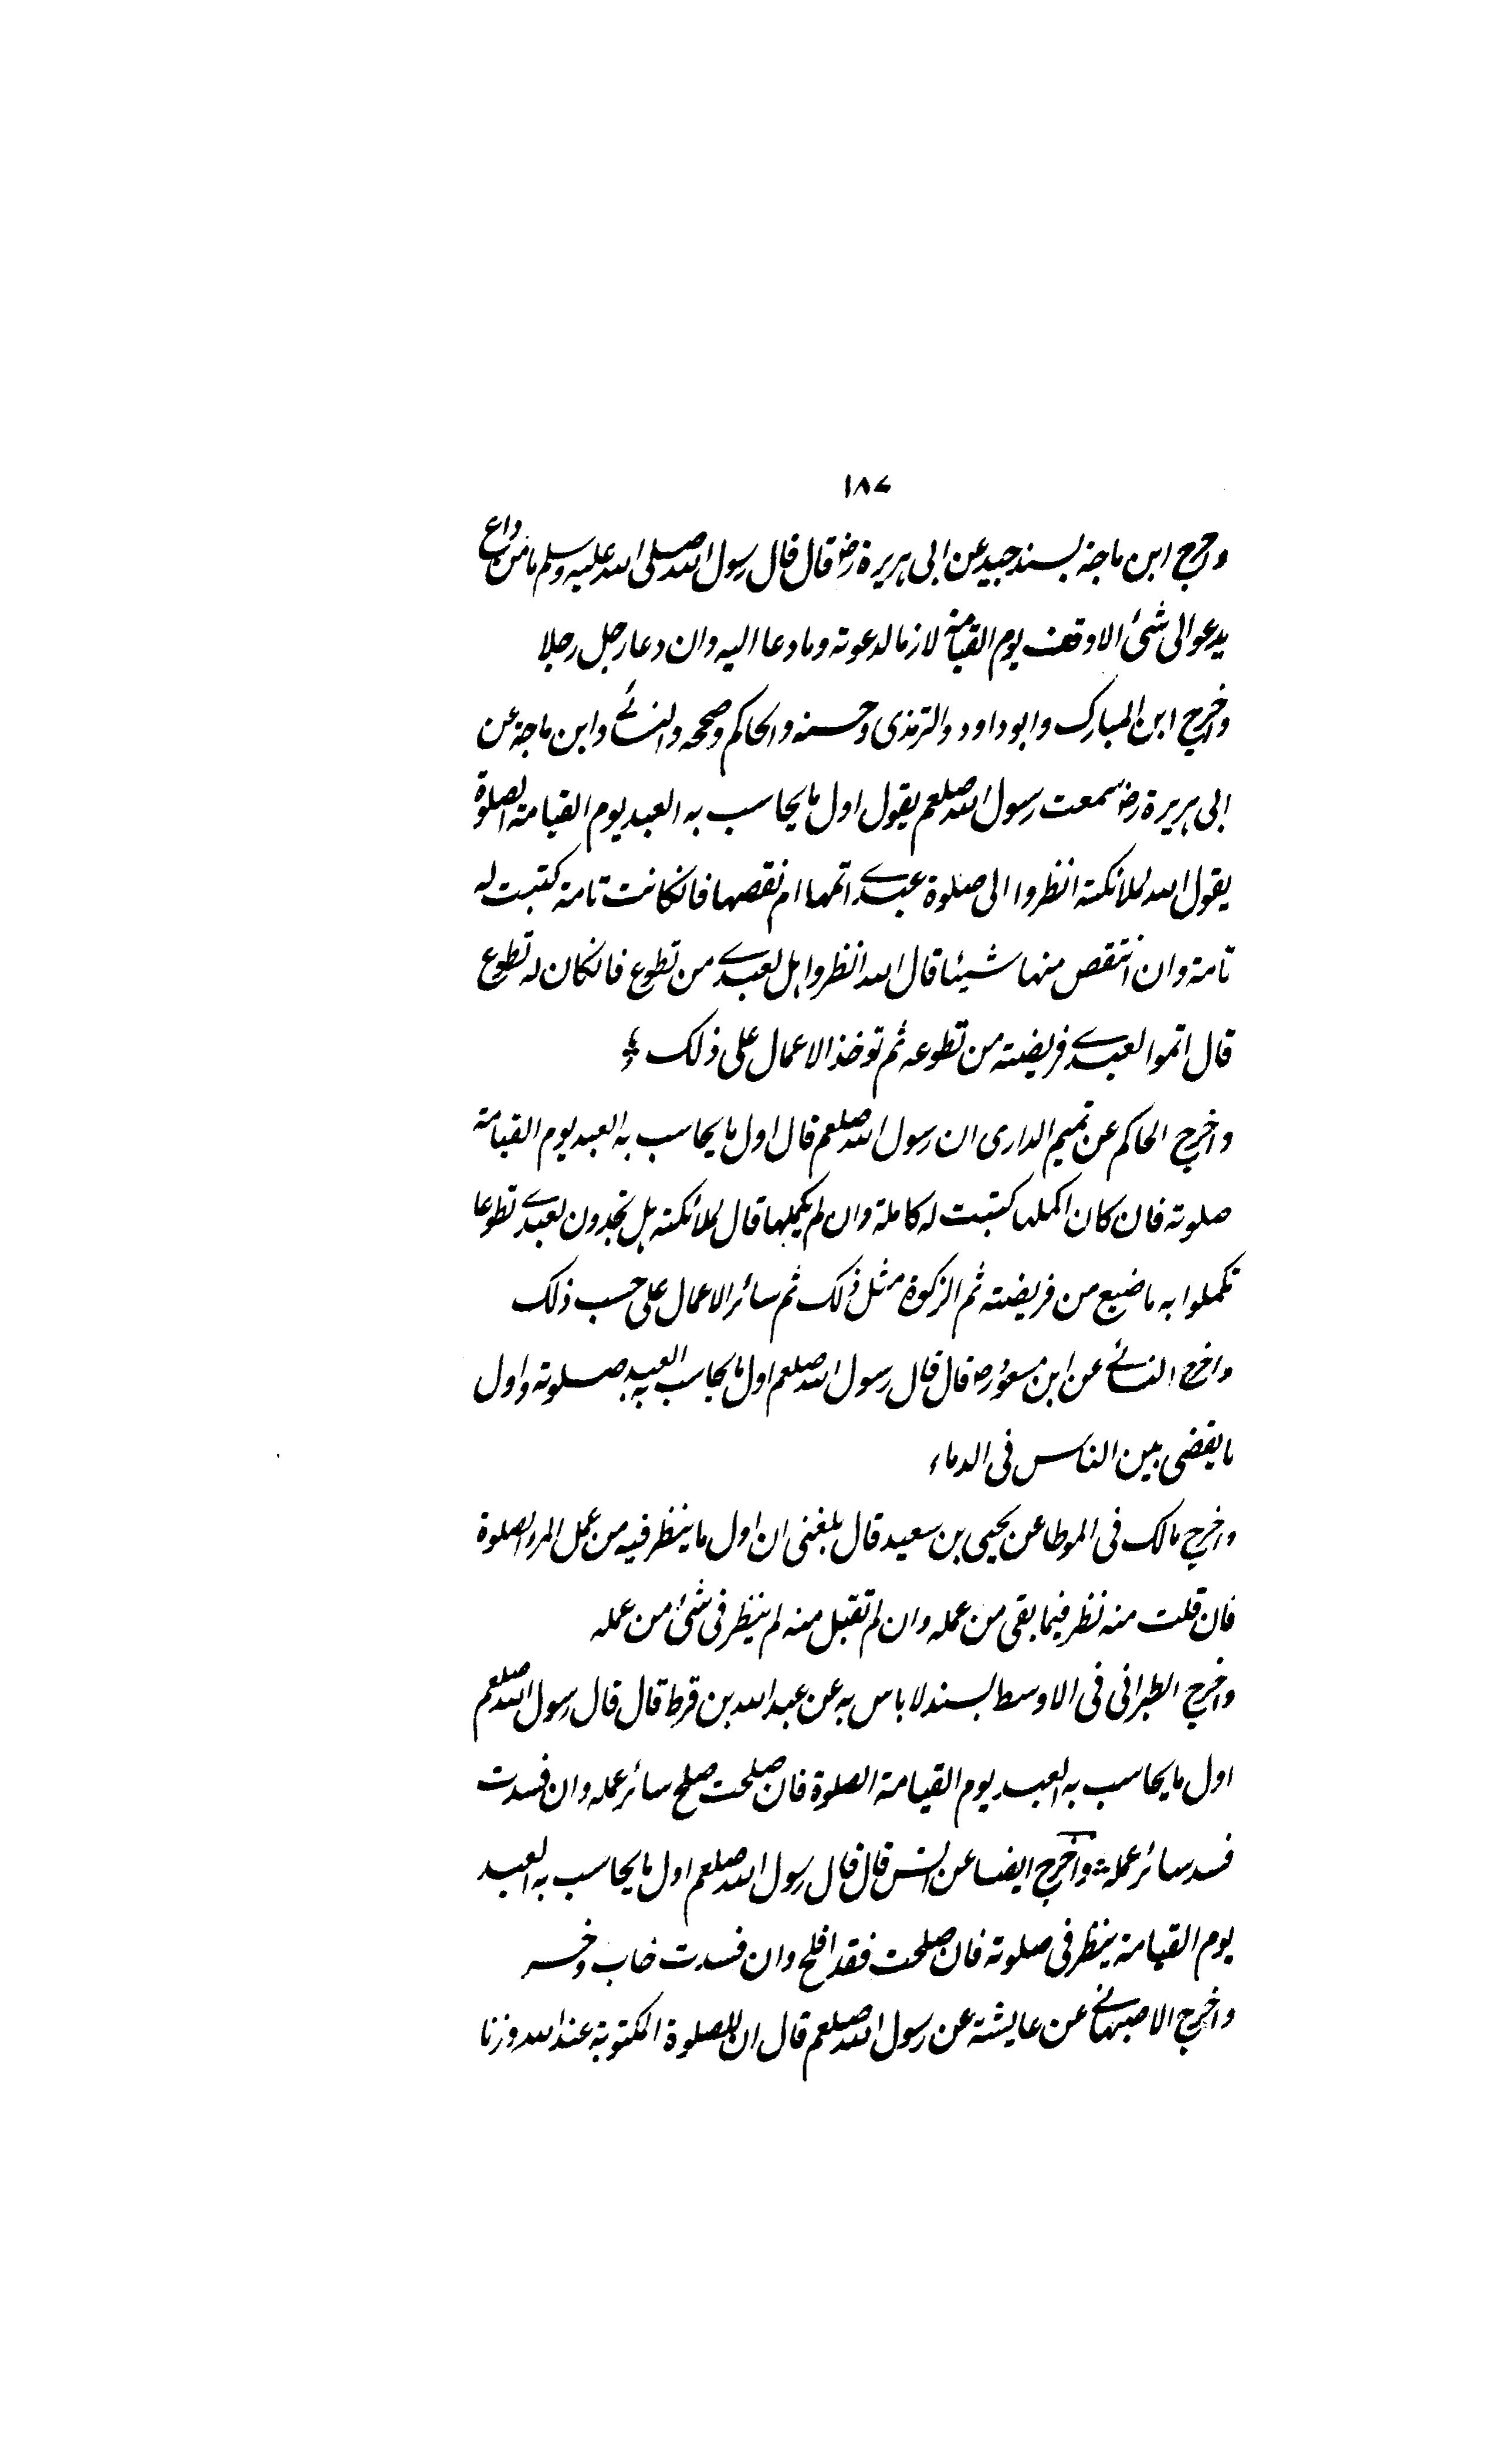 ۱۸۷
وخرج ابن ماجة بسند جيد عن ابى هريرة رض قال قال رسول الله صلى الله عليه وسلم ما من داع
يدعو الى شئ الا وقف يوم القيامة لازما لدعوته وما دعا اليه وان دعا رجل رجلا
واخرج ابن المبارك وابو داود والترمذى وحسنه والحاكم وصححه والنسائے وابن ماجة عن
ابى هريرة رض سمعت رسول الله صلعم يقول اول ما يحاسب به العبد يوم القيامة الصلوة
يقول الله لملائكته انظروا الى صلوة عبدے اتمها ام نقصها فانكانت تامة كتبت له
تامة وان انتقص منها شيئا قال الله انظروا هل لعبدے من تطوع فانكان له تطوع
قال اتموا لعبدے فريضته من تطوعه ثم توخذ الاعمال على ذلك
واخرج الحاكم عن تميم الدارى ان رسول الله صلعم قال اول ما يحاسب به العبد يوم القيامة
صلوته فان كان اكملها كتبت له كاملة وان لم يكملها قال لملائكته هل تجدون لعبدے تطوعا
تكملوا به ما ضيع من فريضته ثم الزكوة مثل ذلك ثم سائر الاعمال على حسب ذلك
واخرج النسائے عن ابن مسعود رض قال قال رسول الله صلعم اول ما يحاسب به العبد صلوته واول
ما يقضى بين الناس فى الدماء
واخرج مالك فى الموطا عن يحيى بن سعيد قال بلغنى ان اول ما ينظر فيه من عمل المرء الصلوة
فان قبلت منه نظر فيما بقى من عمله وان لم تقبل منه لم ينظر فى شئ من عمله
واخرج الطبرانى فى الاوسط بسند لا باس به عن عبد الله بن قرط قال قال رسول الله صلعم
اول ما يحاسب به العبد يوم القيامة الصلوة فان صلحت صلح سائر عمله وان فسدت
فسد سائر عمله واخرج ايضا عن انس قال قال رسول الله صلعم اول ما يحاسب به العبد
يوم القيامة ينظر فى صلوته فان صلحت فقد افلح وان فسدت خاب وخسر
واخرج الاصبهانے عن عايشة عن رسول الله صلعم قال ان للصلوة المكتوبة عند الله وزنا